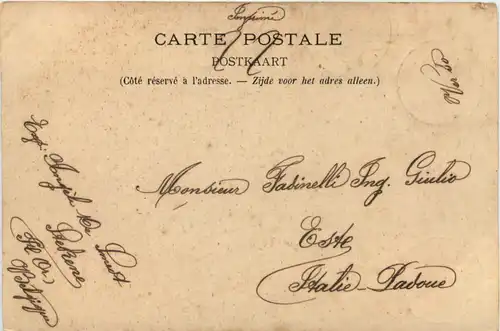 Imprimé
CARTE POSTALE
POSTKAART
(Côté réservé à l'adresse. — Zijde voor het adres alleen.)
Monsieur Fabinelli Ing. Giulio
Este
Italie - Padoue
Stekene
Belgique